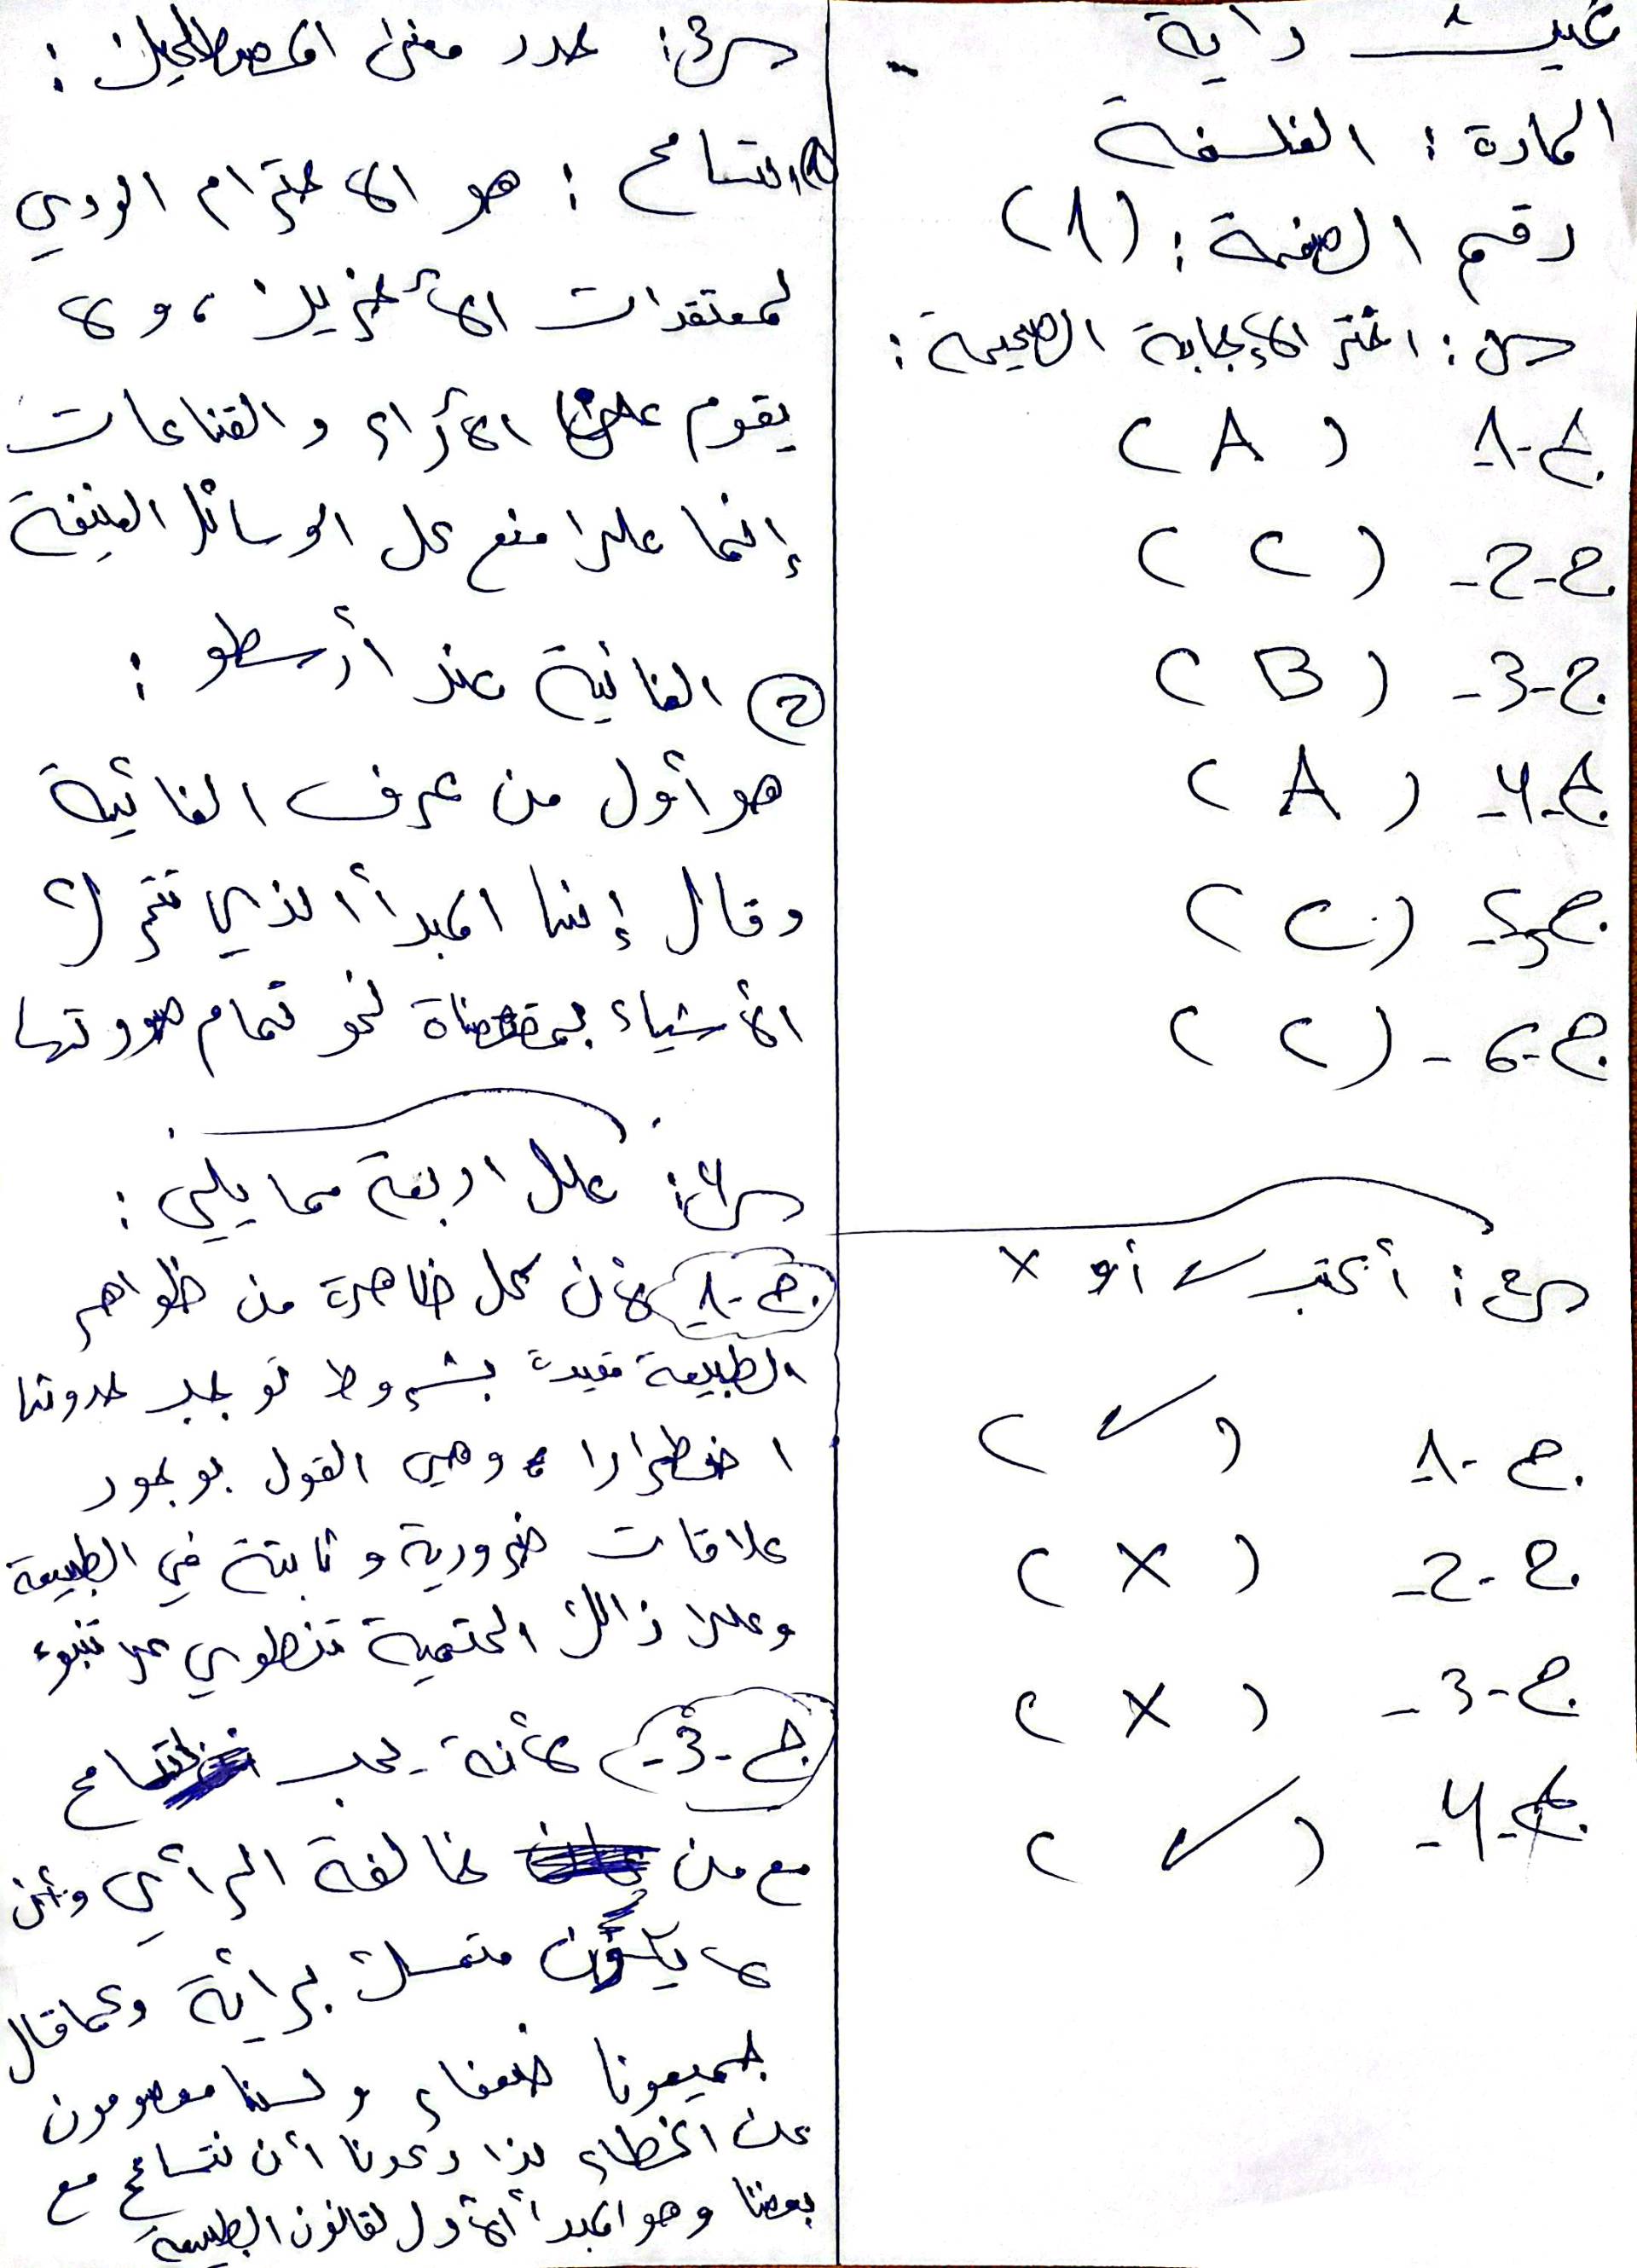 غيث داية
المادة : الفلسفة
رقم الصفحة : (1)
س1 : اختر الإجابة الصحيحة :
ج-1 (A)
ج-2- (C)
ج-3- (B)
ج-4- (A)
ج-5- (C)
ج-6- (C)
س2 : أكتب ✓ أو X
ج-1 (✓)
ج-2- (X)
ج-3- (X)
ج-4- (✓)
س3 : حدد معنى المصطلحين :
① التسامح : هو الاحترام الودي
لمعتقدات الأخرين ، ولا
يقوم على الأراء والقناعات
إنما على منع كل الوسائل العنيفة
② الغائية عند أرسطو :
هو أول من عرف الغائية
وقال إنها المبدأ الذي تتحرك
الأشياء بمقتضاة نحو تمام صورتها
س4 : علل اربعة مما يلي :
ج-1 لأن كل ظاهرة من ظواهر
الطبيعة مقيدة بشروط توجب حدوثها
اضطرارا ، وهي القول بوجود
علاقات ضرورية وثابتة في الطبيعة
وعلى ذالك الحتمية تنطوي على تنبوء
ج-3- لأنة يجب
مع من خالفة الرأي وأن
لا يكون متمسك برائة وكما قال
جميعونا ضعفاء ولسنا معصومون
عن الخطاء لذا دعونا أن نتسامح مع
بعضنا وهو المبدأ الأول لقانون الطبيعة